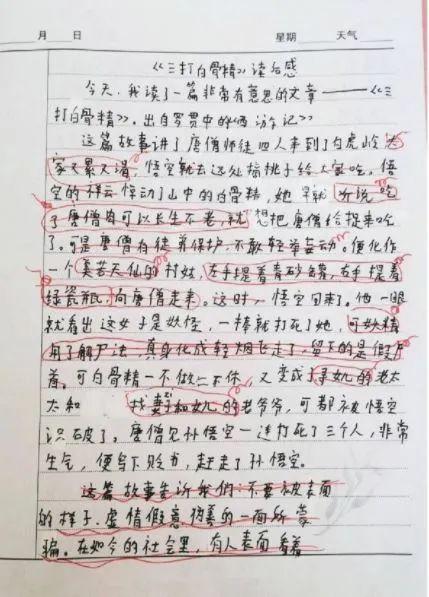 月 日 星期 天气
《三打白骨精》读后感
今天，我读了一篇非常有意思的文章——《三
打白骨精》，出自罗贯中的《西游记》
这篇故事讲了唐僧师徒四人来到了白虎岭 大
家又累又渴，悟空就去远处摘桃子给大家吃，悟
空的祥云惊动了山中的白骨精，她早就听说吃
了唐僧肉可以长生不老，就想把唐僧给捉来吃
了。可是唐僧有徒弟保护，不敢轻举妄动。便化作
一个美若天仙的村姑，左手提着青砂罐，右手提着
绿瓷瓶，向唐僧走来。这时，悟空回来了。他一眼
就看出这女子是妖怪，一棒就打死了她，可妖精
用了解尸法，真身化成轻烟飞走了，留下的是假尸
首。可白骨精一不做二不休，又变成了寻女儿的老太
太和 找妻子和女儿的老爷爷，可都被悟空
识破了。唐僧见孙悟空一连打死了三个人，非常
生气，便写下贬书，赶走了孙悟空。
这篇故事告诉我们：不要被表面
的样子、虚情假意伪善的一面所蒙
骗。在如今的社会里，有人表面看着